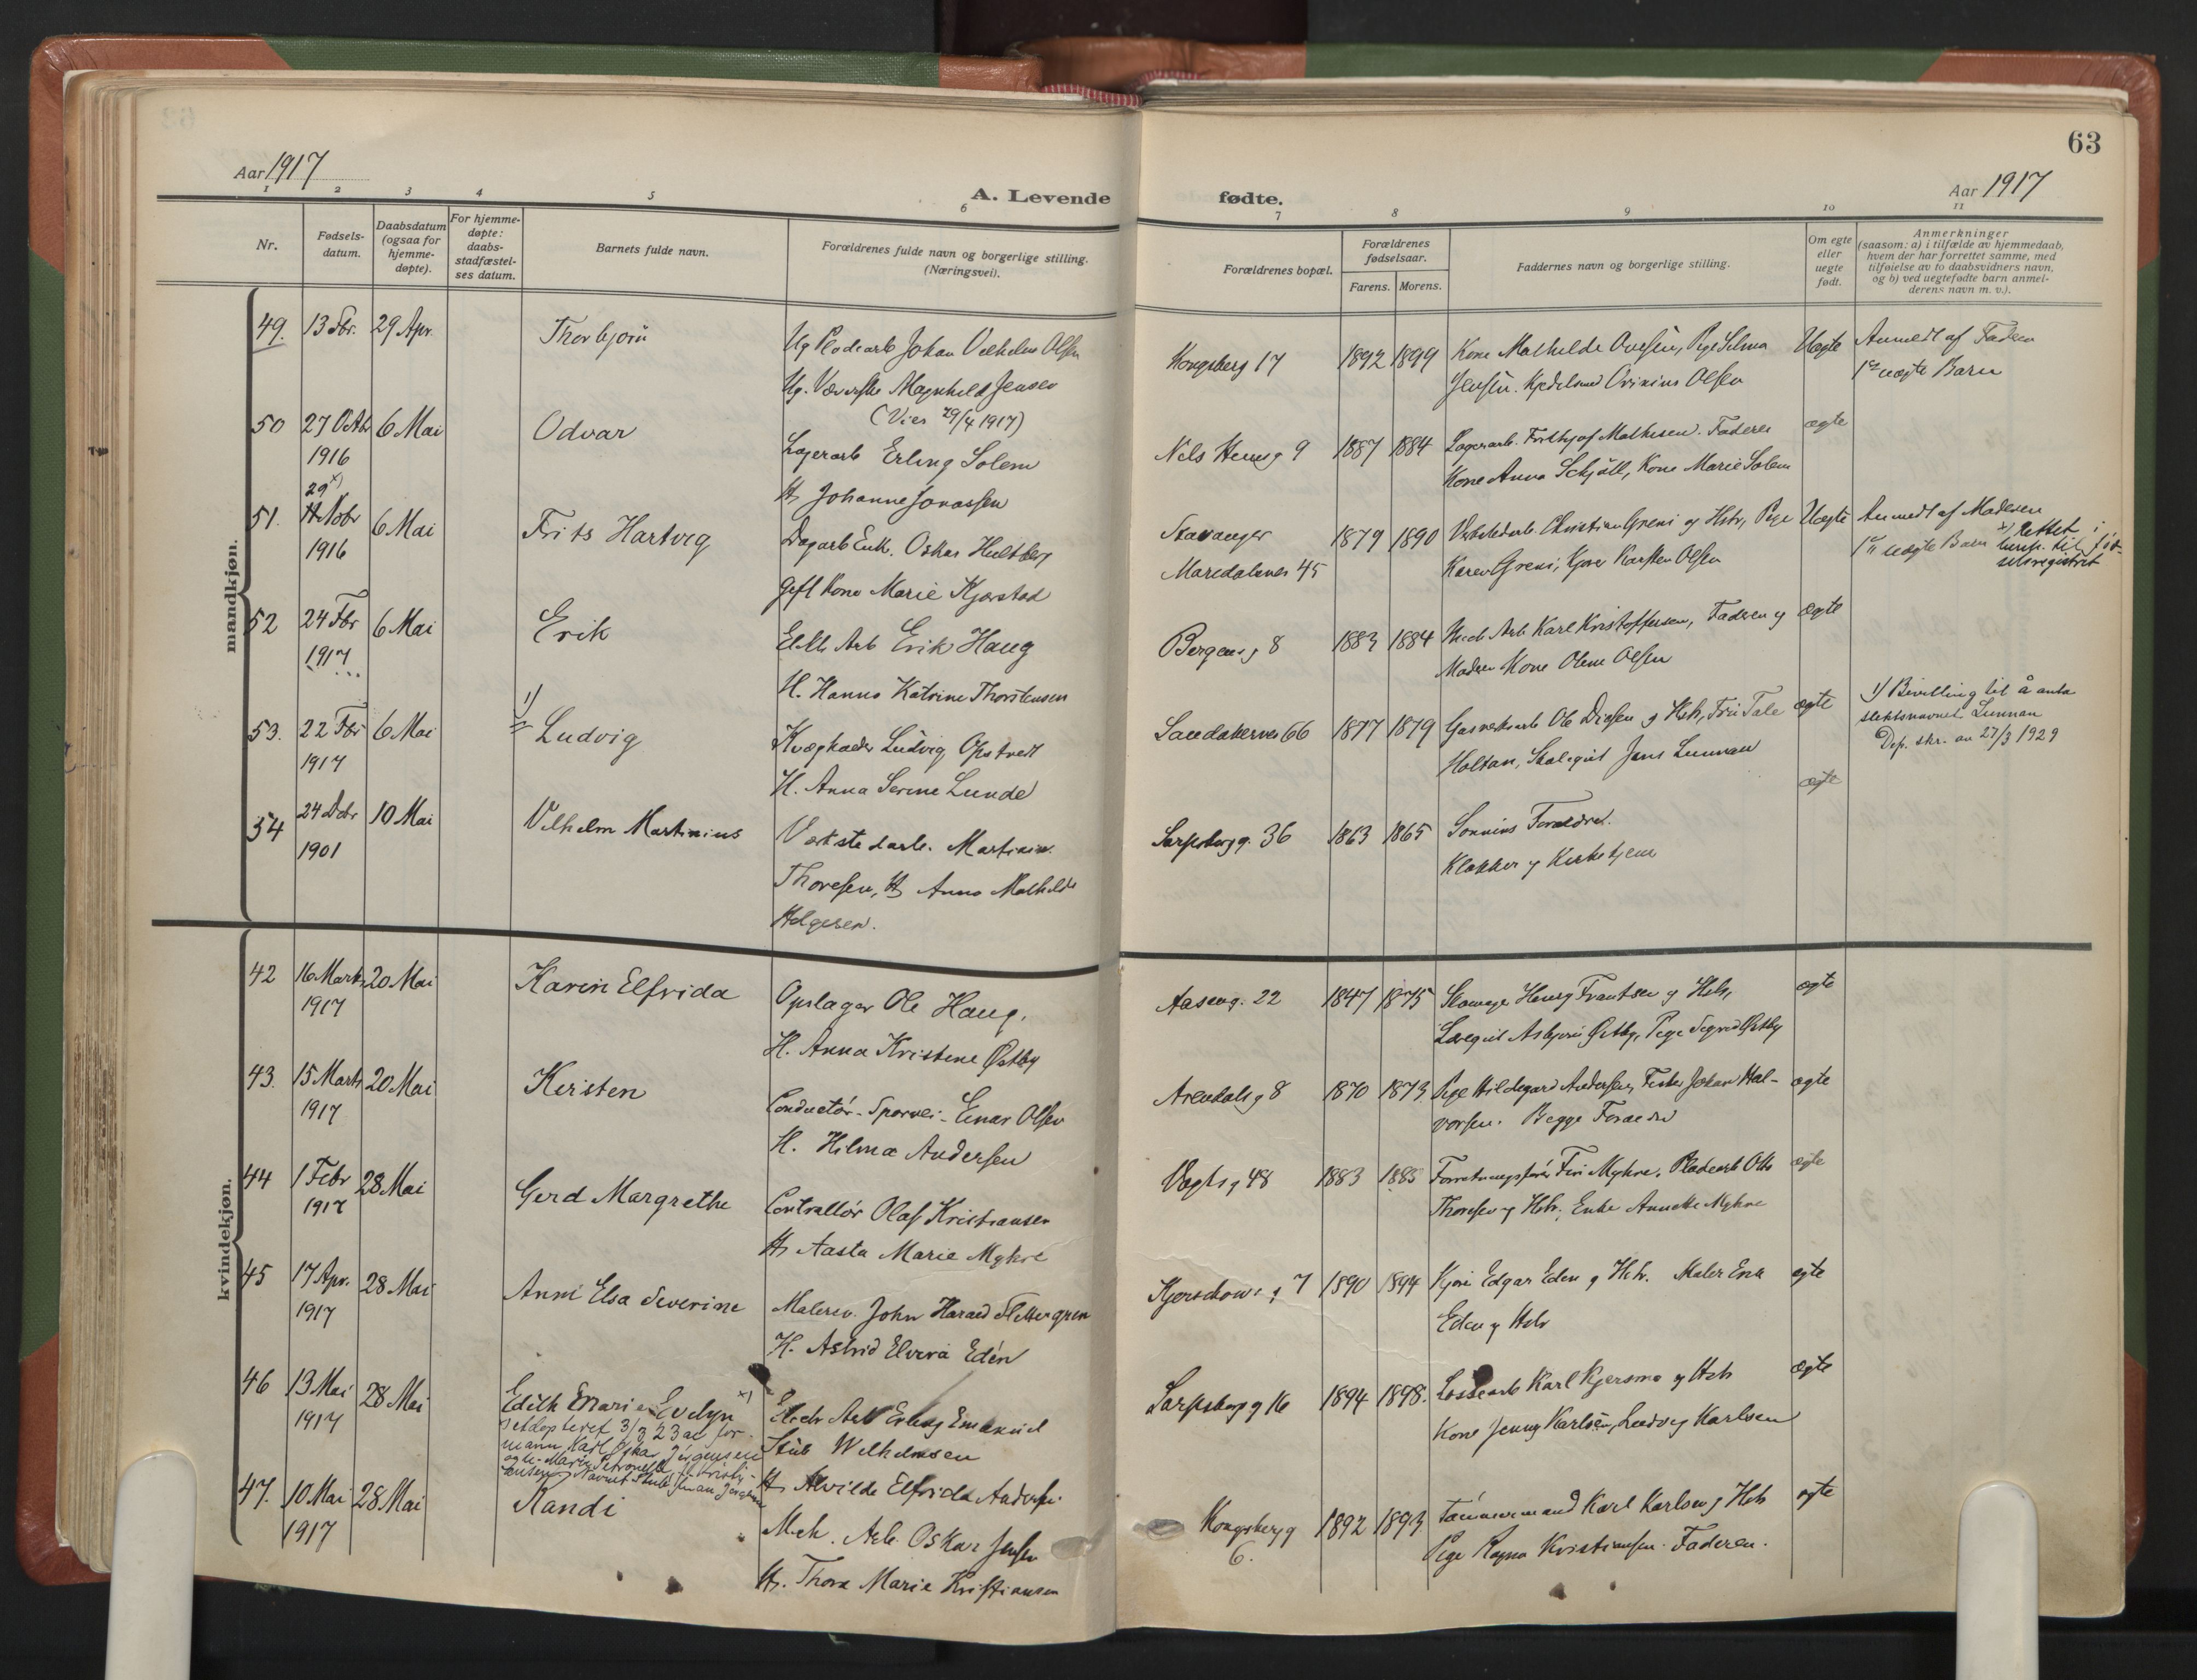 63
Aar 1917
A. Levende fødte.
Aar 1917
1 2 3 4 5 6 7 8 9 10 11
Nr.
Fødsels-
datum.
Daabsdatum
(ogsaa for
hjemme-
døpte).
For hjemme-
døpte:
daabs-
stadfæstel-
ses datum.
Barnets fulde navn.
Forældrenes fulde navn og borgerlige stilling.
(Næringsvei).
Forældrenes bopæl.
Forældrenes
fødselsaar.
Farens. Morens.
Faddernes navn og borgerlige stilling.
Om egte
eller
uegte
født.
Anmerkninger
(saasom: a) i tilfælde av hjemmedaab,
hvem der har forrettet samme, med
tilføielse av to daabsvidners navn,
og b) ved uegtefødte barn anmel-
derens navn m. v.).
mandkjøn.
49. 13 Fbr. 29 Apr. Thorbjørn
Ug Pladearb Johan Vilhelm Olsen
Ug. Væverske Magnhild Jensen
(Vies 29/4 1917)
Kongsberg 17 1892 1899
Kone Mathilde Ovesen, Pige Selma
Jensen. Kjedelsmed Ovinius Olsen
Uegte
Anmeldt af Faderen
1ste uegte Barn
50 27 Octb 6 Mai Odvar
1916
Lagerarb Erling Solem
H. Johanne Jonassen
Nels Hennsg 9 1887 1884
Lagerarb. Mathisen. Faderen
Kone Anna Schjøll, Kone Marie Solem
ægte
51. 29 x) Nobr 6 Mai Frits Hartvig
1916
Dagarb Enk. Oskar Hultberg
Gift Kone Marie Kjærstad
Stavanger
Maridalsveien 45 1879 1890
Verkstedarb. Christian Greni og Hstr, Pige
Karen Greni, Kjører Karsten Olsen
Uegte
Anmeldt af Moderen
1ste uegte Barn
x) Rettet i
henh. til fød-
selsregistret
52 24 Fbr 6 Mai Erik
1917
Elektr Arb Erik Haug
H. Hanna Katrine Thorstensen
Bergensg 8 1883 1884
Mek Arb. Karl Kristoffersen, Faderen og
Moderen Kone Oline Olsen
Ægte
53. 22 Fbr 6 Mai 1) Ludvig
1917
Kvæghandler Ludvig Opstvedt
H. Anna Serine Lunde
Sandakerveien 66 1877 1879
Gasverksarb Ole Diesen og Hstr, Frk Tale
Holtan, Skolegut Jens Lunnan
ægte
1) Bevilling til å anta
slektsnavnet Lunnan
Dep. skr. av 27/3 1929
54 24 Debr 10 Mai Vilhelm Martinius
1901
Værkstedarb. Martinius
Thoresen, H. Anna Mathilde
Helgesen.
Sarpsborgg. 36 1863 1865
Sønnens Forældre.
Klokker og Kirketjener
ægte
kvindekjøn.
42 16 Marts 20 Mai Karin Elfrida
1917
Opslager Ole Haug.
H. Anna Kristine Østby
Aaseng. 22 1847 1875
Skomager Henry Frantsen og Hstr,
Læregut Asbjørn Østby, Pige Sigrid Østby
ægte
43. 15 Marts 20 Mai Kirsten
1917
Conductør - Sporvei - Einar Olsen
H. Hilma Andersen
Arendalsg 8 1870 1873
Pige Hildegard Andersen, Fisker Johan Hal-
vorsen. Begge Forældre
ægte
44 1 Febr 28 Mai Gerd Margrethe
1917
Controllør Olaf Kristiansen
H. Aasta Marie Myhre
Vogtsg 48 1883 1885
Forretningsfører Finn Myhre, Pladearb Otto
Thoresen og Hstr, Enke Annette Myhre
ægte
45 17 Apr. 28 Mai Anni Elsa Severine
1917
Malersv. John Harald Flettergren
H. Astrid Elvira Edén
Kjerschows g 7 1890 1894
Kjører Edgar Eden og Hstr. Maler Erik
Eden og Hstr
ægte
46 13 Mai 28 Mai Edith Marie Evelyn x)
1917
x) adoptert 3/3 23 av for-
mann Karl Oskar Jørgensen
og h. Marie Petronelle f. Kristi-
ansen. Navnet skal være Jørgensen
Mek Arb Erling Emanuel
Stub Wilhelmsen
H. Alvilde Elfrida Andersen
Sarpsborgg 16 1894 1898.
Lossearb Karl Kjersmo og Hstr
Kone Jenny Karlsen, Ludvig Karlsen
Ægte
47. 10 Mai 28 Mai Randi
1917
Mek. Arb. Oskar Jensen
H. Thora Marie Kristiansen
Kongsbergg
6. 1892 1893
Tømmermand Karl Karlsen og Hstr
Pige Ragna Kristiansen. Faderen.
ægte